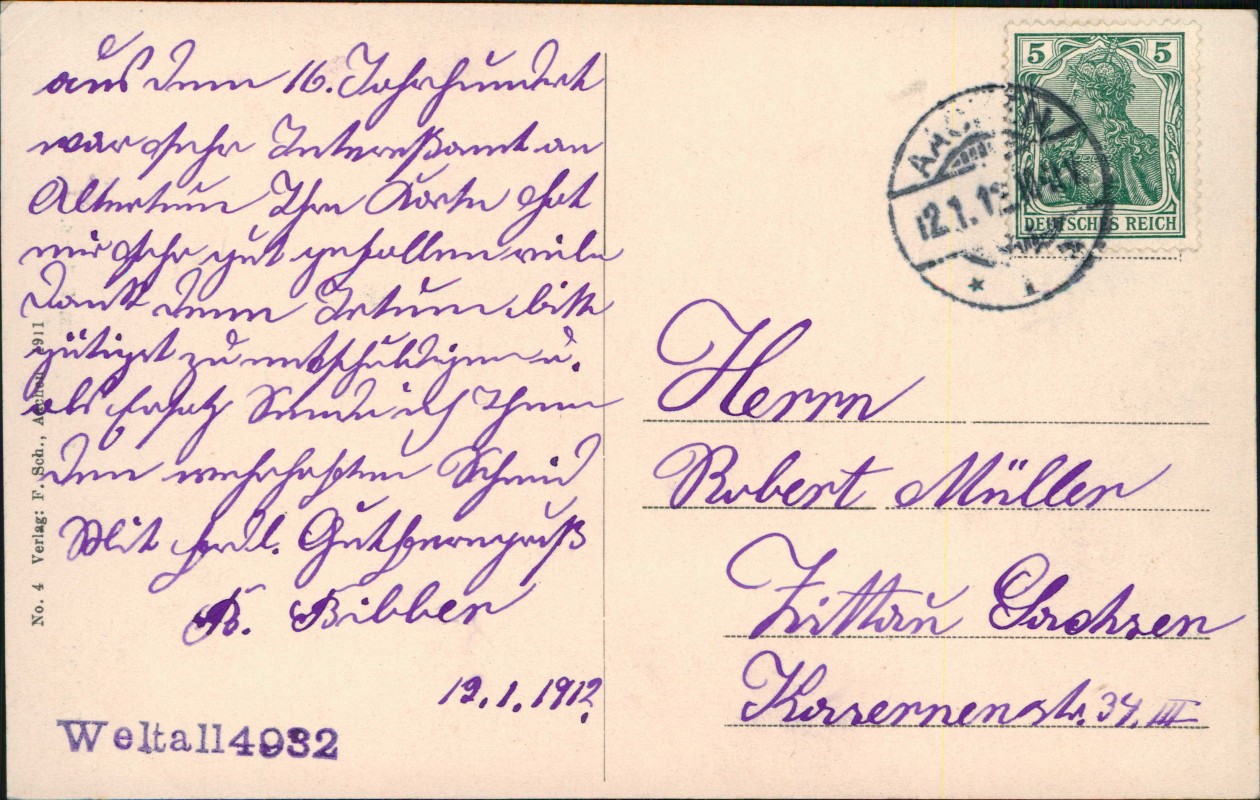 aus dem 16. Jahrhundert
war sehr Interessant an
Altertum Ihre Karte hat
mir sehr gut gefallen viele
Dank denn Irtum bitte
gütigst zu entschuldigen u.
als Ersatz Sende ich Ihnen
den wehrhaften Schmid
Mit frdl. Gutferngruß
B. Bibber
12.1.1912.
Weltall4932
No. 4 Verlag: F. Sch., Aachen 1911
5 5
DEUTSCHES REICH
AACHEN
12.1.12
* 1
Herrn
Robert Müller
Zittau Sachsen
Kasernenstr. 34. III